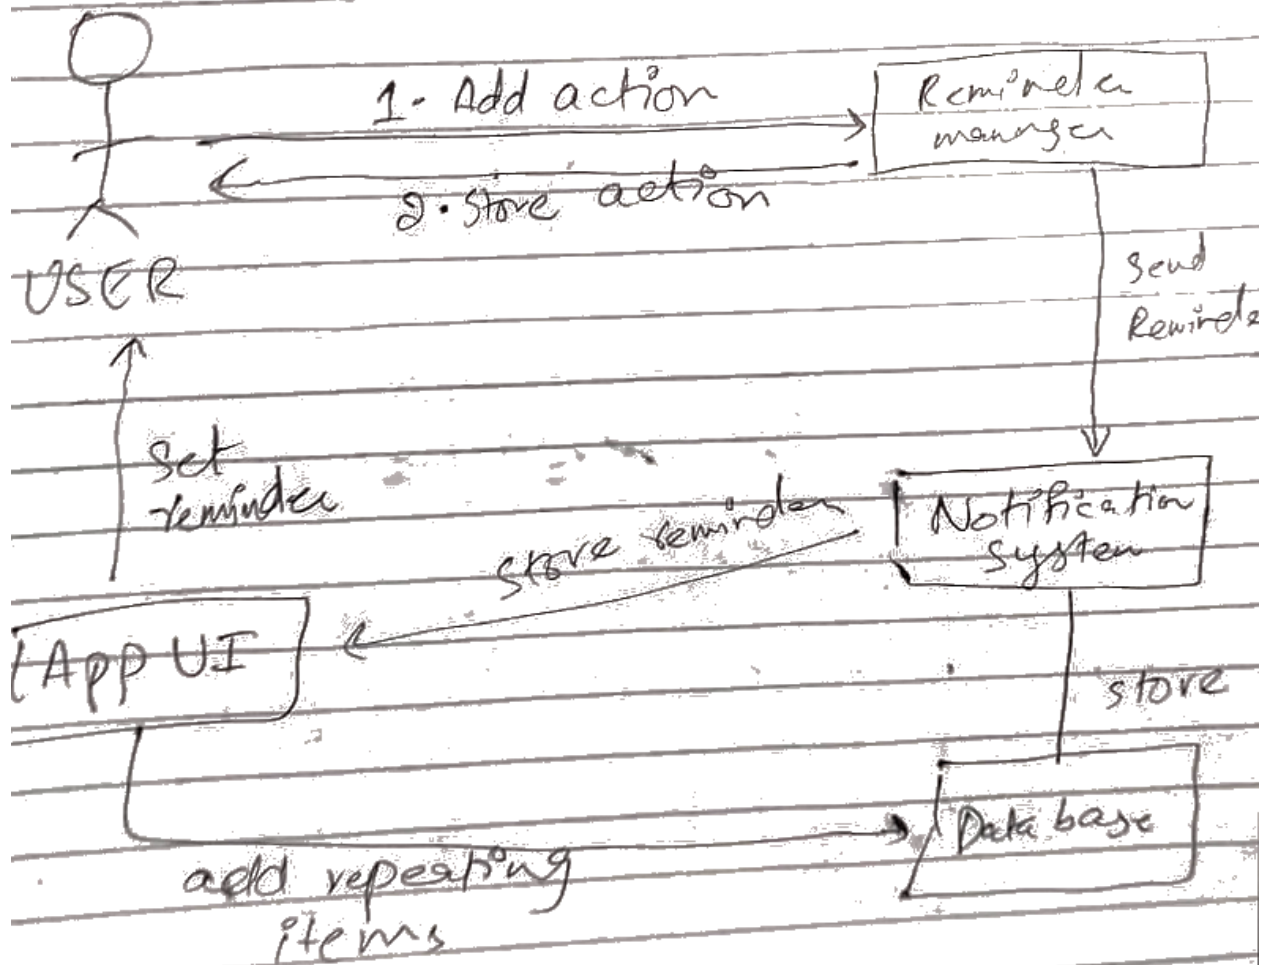 1. Add action
Reminder
manager
2. Store action
USER
Send
Set
reminder
store reminder
Notification
System
App UI
store
Data base
add repeating
items